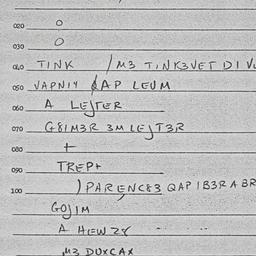 020 O
030 O
040 TINK /M3 TINK3VET DI
050 VAPNIY QAP LEUM
060 A LEJTER
070 G81M3R 3M LEJT3R
080 +
090 TREP+
100 ) PARENC83 QAP IB3R A BR
GOJIM
A HEW 28
M3 DUXCAX